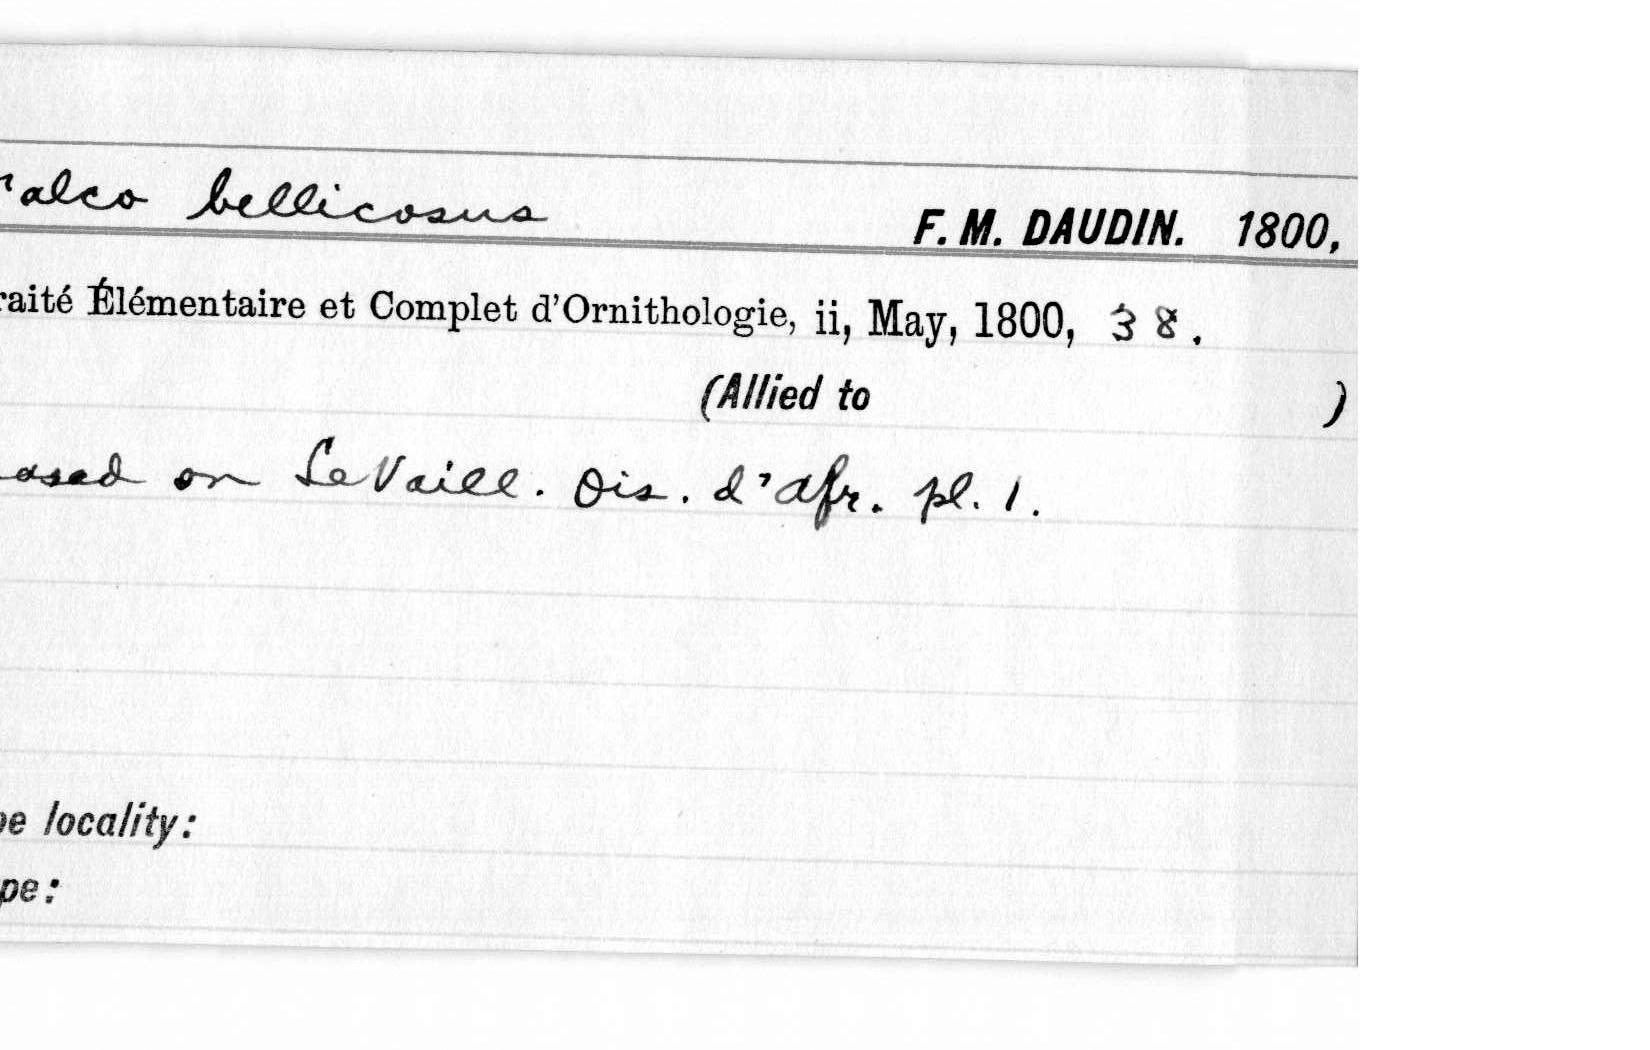 Falco bellicosus F. M. DAUDIN. 1800,
raité Élémentaire et Complet d'Ornithologie, ii, May, 1800, 38.
(Allied to )
ased on LeVaill. Ois. d'Afr. pl. 1.
pe locality:
pe: